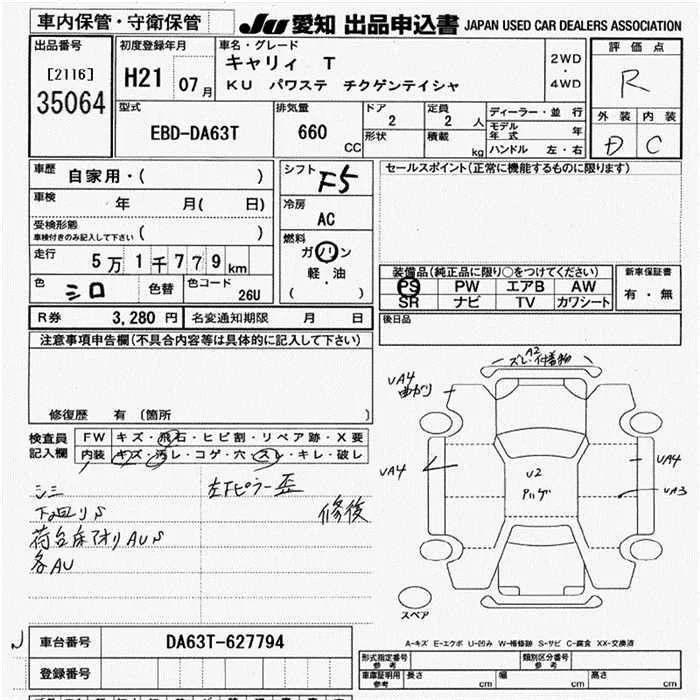 車内保管・守衛保管
JU 愛知 出品申込書 JAPAN USED CAR DEALERS ASSOCIATION
出品番号
[2116]
35064
初度登録年月
H21 07月
車名・グレード
キャリィ T
KU パワステ チクゲンテイシャ
2WD
・
4WD
評価点
R
外装 内装
D C
型式
EBD-DA63T
排気量
660
CC
ドア
2
定員
2 人
形状
積載
kg
ディーラー・並 行
モデル年式 年
ハンドル 左・右
車歴
自家用・( )
車検
年 月( 日)
受検形態
車検付きのみ記入して下さい ( )
走行
5万1千779km
色
シロ
色替
色コード
26U
シフト
F5
冷房
AC
燃料
ガソリン
・
軽 油
( )
セールスポイント(正常に機能するものに限ります)
装備品(純正品に限り○をつけてください)
PS PW エアB AW
SR ナビ TV カワシート
新車保証書
有・無
R券 3,280 円 名変通知期限 月 日
後日品
注意事項申告欄(不具合内容等は具体的に記入して下さい)
修復歴 有 (箇所 )
検査員
記入欄
FW キズ・飛石・ヒビ割・リペア跡・X要
内装 キズ・汚レ・コゲ・穴・スレ・キレ・破レ
シミ
下回りS
荷台床アオリAUS
各AU
左下ピラー歪
修復
A2
ズレ・付着物
UA4
曲がり
UA4
U2
UA4
UA3
スペア
A-キズ E-エクボ U-凹み W-補修跡 S-サビ C-腐食 XX-交換済
車台番号 DA63T-627794
登録番号
形式指定番号
参考
類別区分番号
参考
車庫証明用
参考
長さ cm 幅 cm 高さ cm